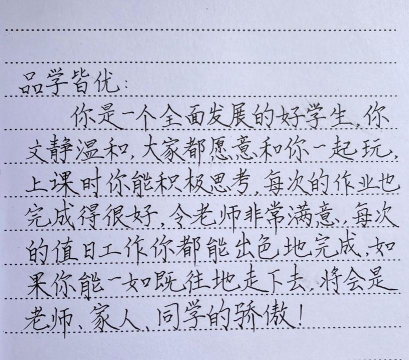 品学皆优：
你是一个全面发展的好学生,你
文静温和,大家都愿意和你一起玩,
上课时你能积极思考,每次的作业也
完成得很好,令老师非常满意,每次
的值日工作你都能出色地完成,如
果你能一如既往地走下去,将会是
老师、家人、同学的骄傲！